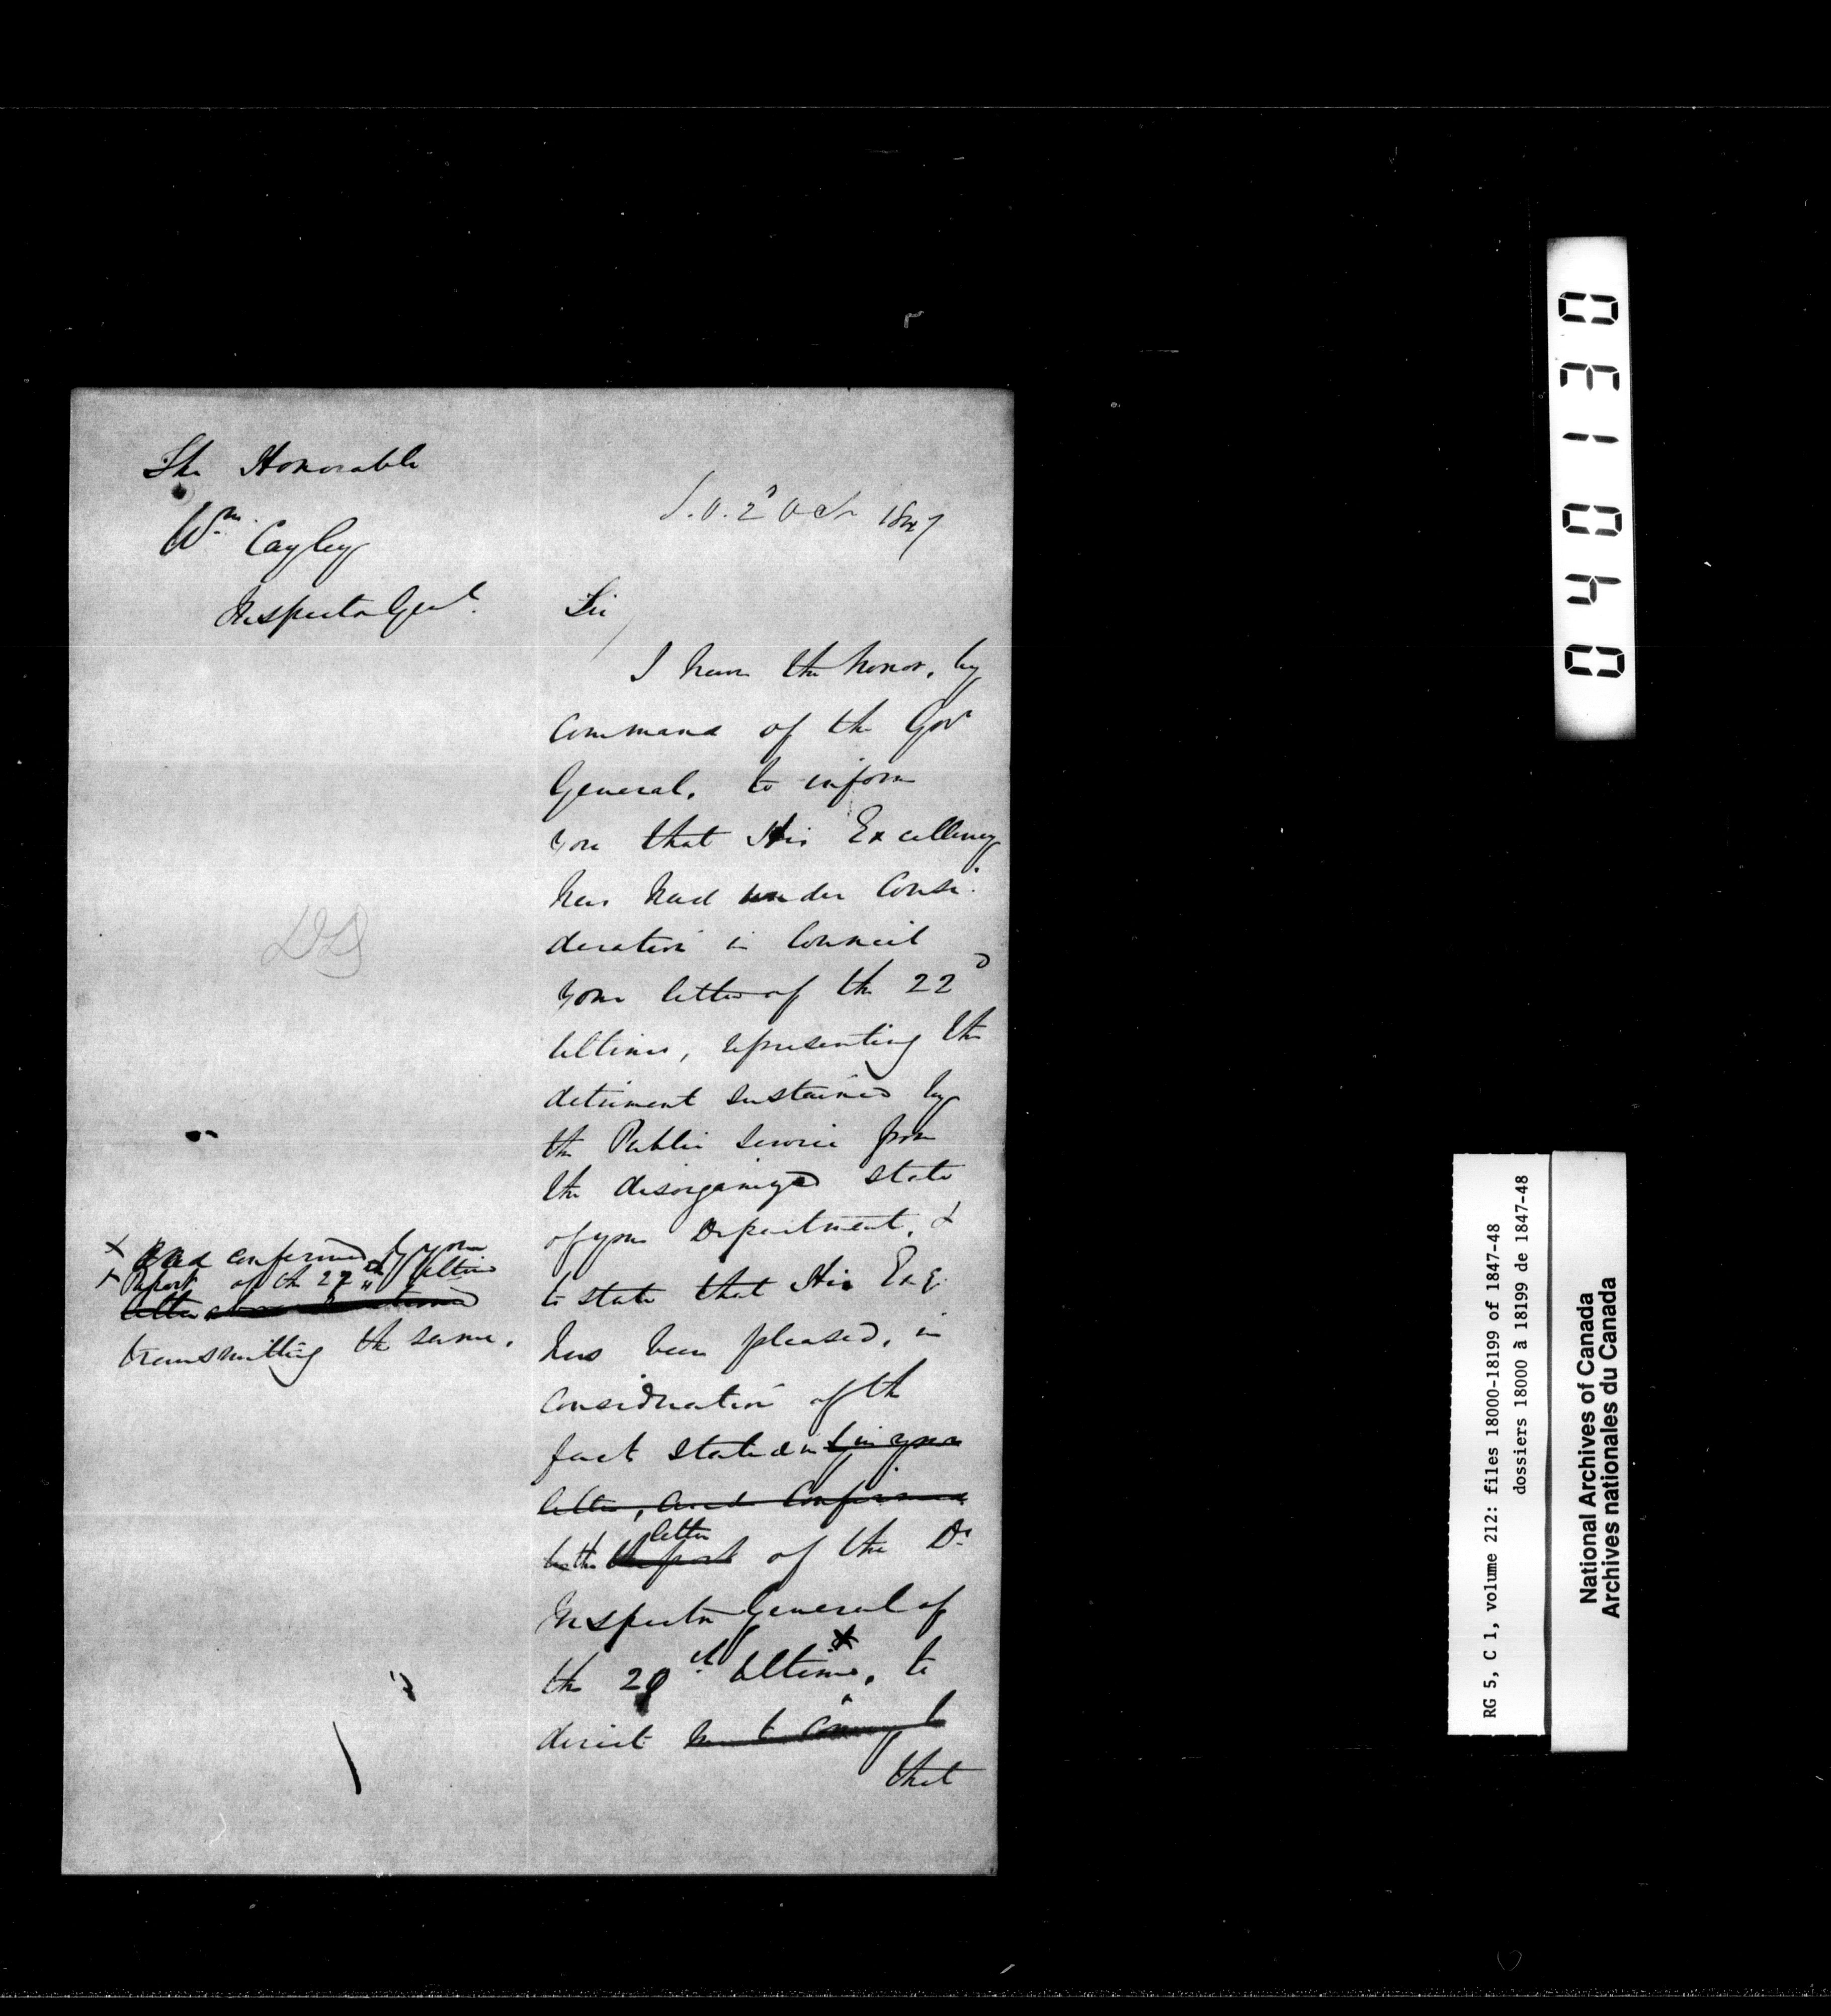 The Honorable
Wm. Cayley
Inspector Genl.
S.O. 2d Octr 1847
Sir
I have the honor, by
command of the Govr
General, to inform
you that His Excellency
has had under Consi-
deration in Council
your letter of the 22d
Ultimo, representing the
detriment sustained by
the Public Service from
the disorganized state
of your Department, &
to state that His Exc:
has been pleased, in
consideration of the
fact stated in your
letter, and confirmed
by the letter of the Dy
Inspector General of
the 20th Ultimo, to
direct me to convey to
that
X and confirmed by your
X report of the 22d Ultimo
letter above mentioned
transmitting the same.
040130
RG 5, C 1, volume 212: files 18000-18199 of 1847-48
dossiers 18000 à 18199 de 1847-48
National Archives of Canada
Archives nationales du Canada